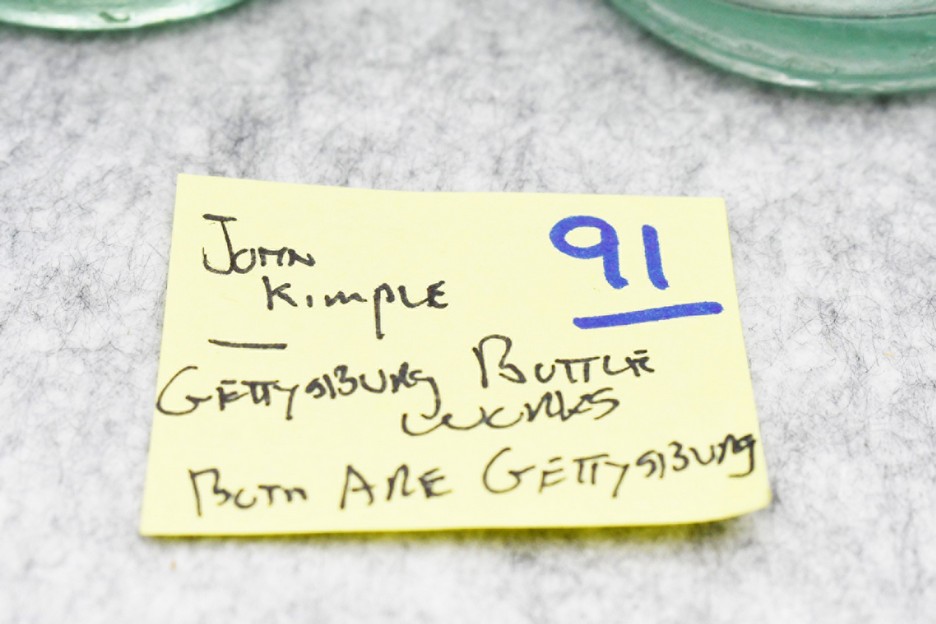 John
Kimple
91
Gettysburg Bottle
Works
Both Are Gettysburg